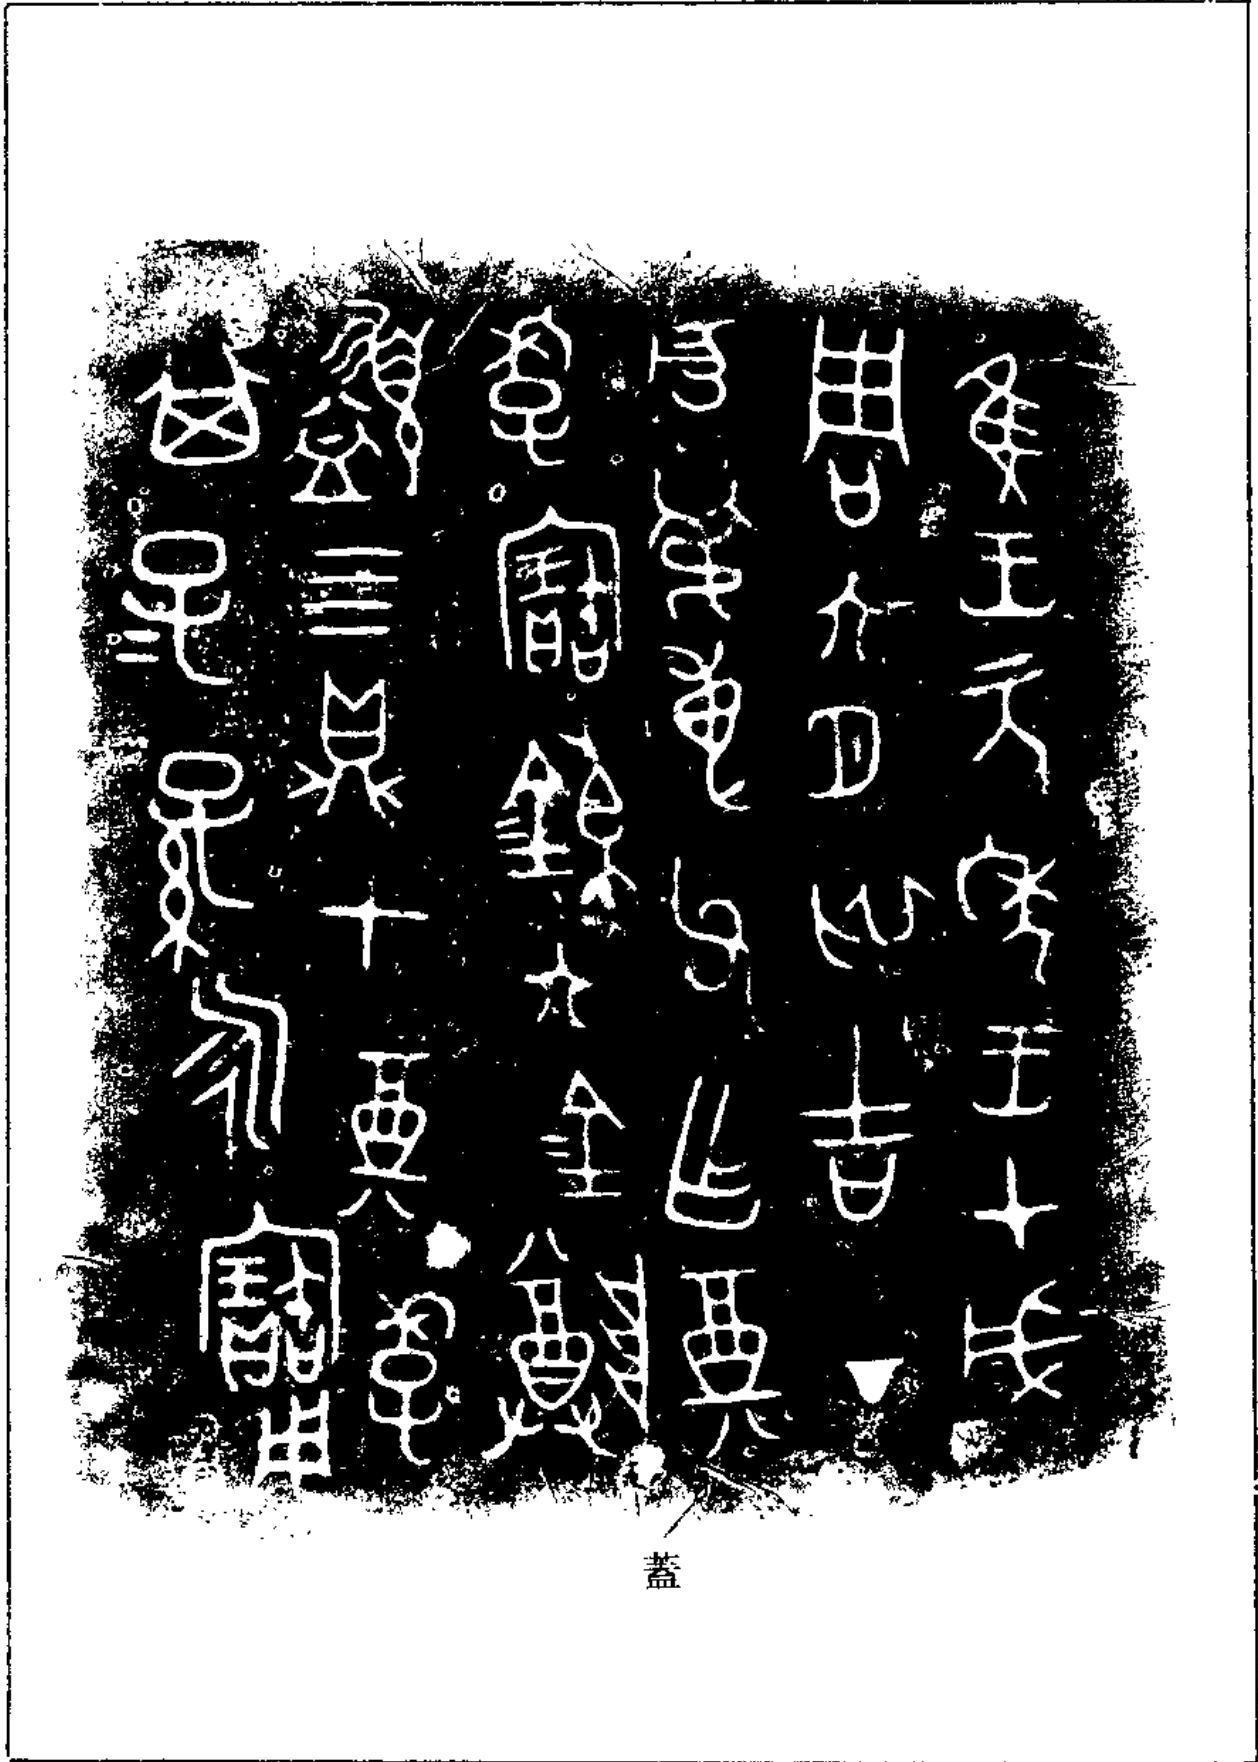 隹王元年王才成
周六月初吉丁
亥弔專父乍奠
季寶鐘六金尊
盨四鼎七奠季
其子=孫永寶用
蓋